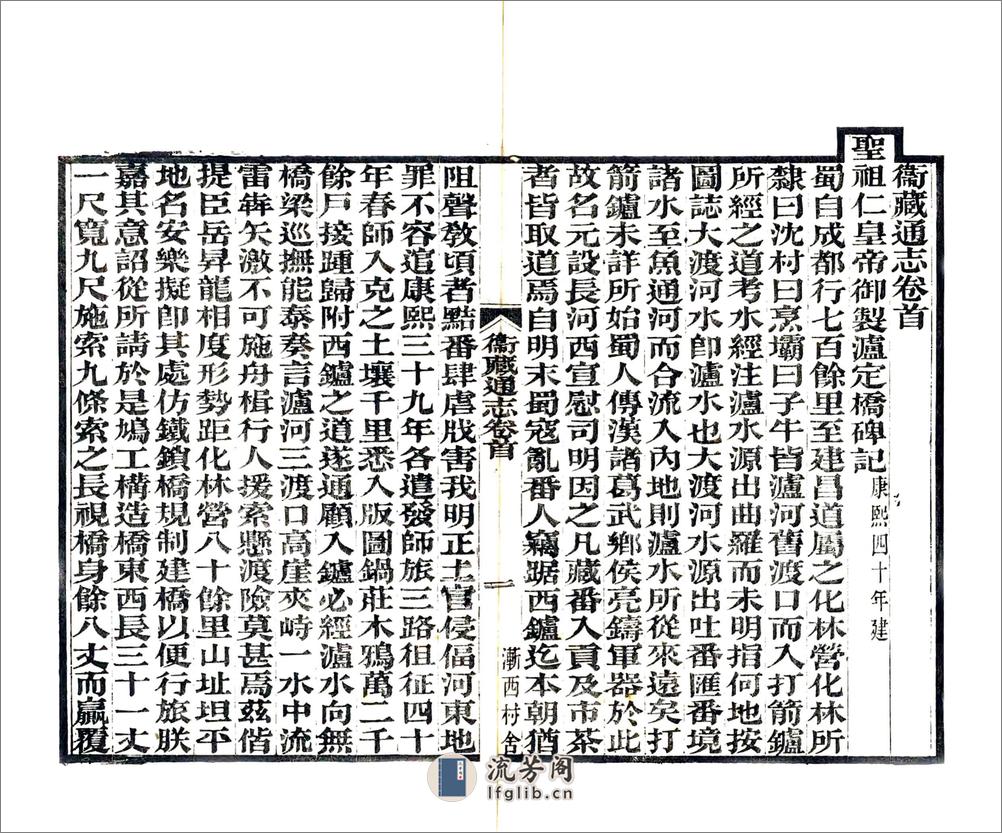 衞藏通志卷首
聖祖仁皇帝御製瀘定橋碑記康熙四十年建
蜀自成都行七百餘里至建昌道屬之化林營化林所
隸曰沈村曰烹壩曰子牛皆瀘河舊渡口而入打箭鑪
所經之道考水經注瀘水源出曲羅而未明指何地按
圖誌大渡河水卽瀘水也大渡河水源出吐番匯番境
諸水至魚通河而合流入內地則瀘水所從來遠矣打
箭鑪未詳所始蜀人傳漢諸葛武鄉侯亮鑄軍器於此
故名元設長河西宣慰司明因之凡藏番入貢及市茶
者皆取道焉自明末蜀寇亂番人竊踞西鑪迄本朝猶
衞藏通志卷首
一
漸西村舍
阻聲敎頃者黠番肆虐戕害我明正土官侵偪河東地
罪不容逭康熙三十九年各遣發師旅三路徂征四十
年春師入克之土壤千里悉入版圖鍋莊木鴉萬二千
餘戶接踵歸附西鑪之道遂通顧入鑪必經瀘水向無
橋梁巡撫能泰奏言瀘河三渡口高崖夾峙一水中流
雷犇矢激不可施舟楫行人援索懸渡險莫甚焉茲偕
提臣岳昇龍相度形勢距化林營八十餘里山址坦平
地名安樂擬卽其處仿鐵鎖橋規制建橋以便行旅朕
嘉其意詔從所請於是鳩工構造橋東西長三十一丈
一尺寬九尺施索九條索之長視橋身餘八丈而贏覆
流芳阁
lfglib.cn